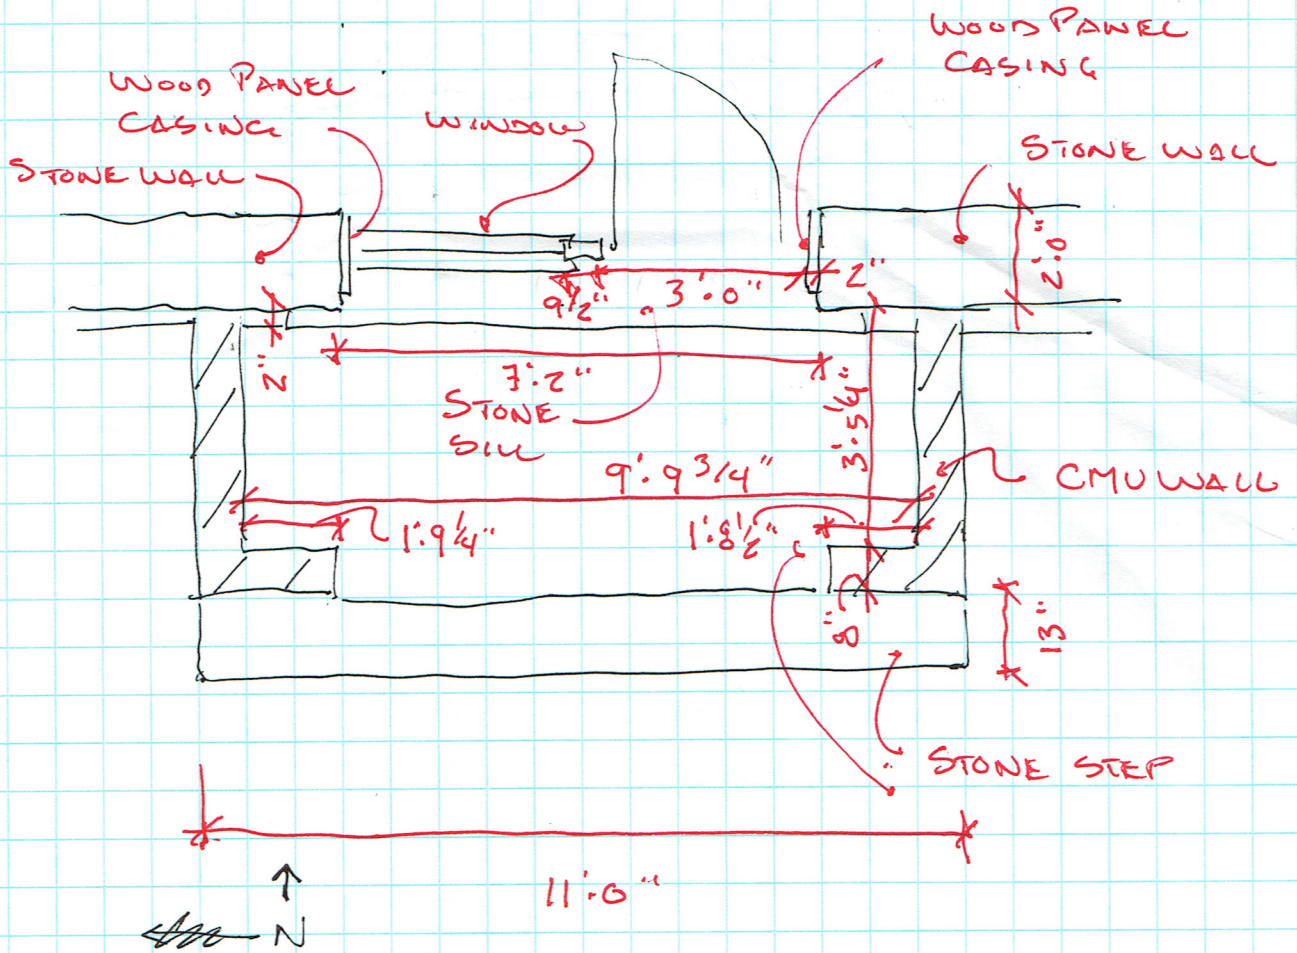 WOOD PANEL
CASING
WOOD PANEL
CASING
WINDOW
STONE WALL
STONE WALL
2'·0"
2"
9 1/2"
3'·0"
2"
7'·2"
STONE
SILL
3'·5 1/4"
9'·9 3/4"
CMU WALL
1'·9 1/4"
1'·8 1/2"
8"
13"
STONE STEP
11'·0"
N